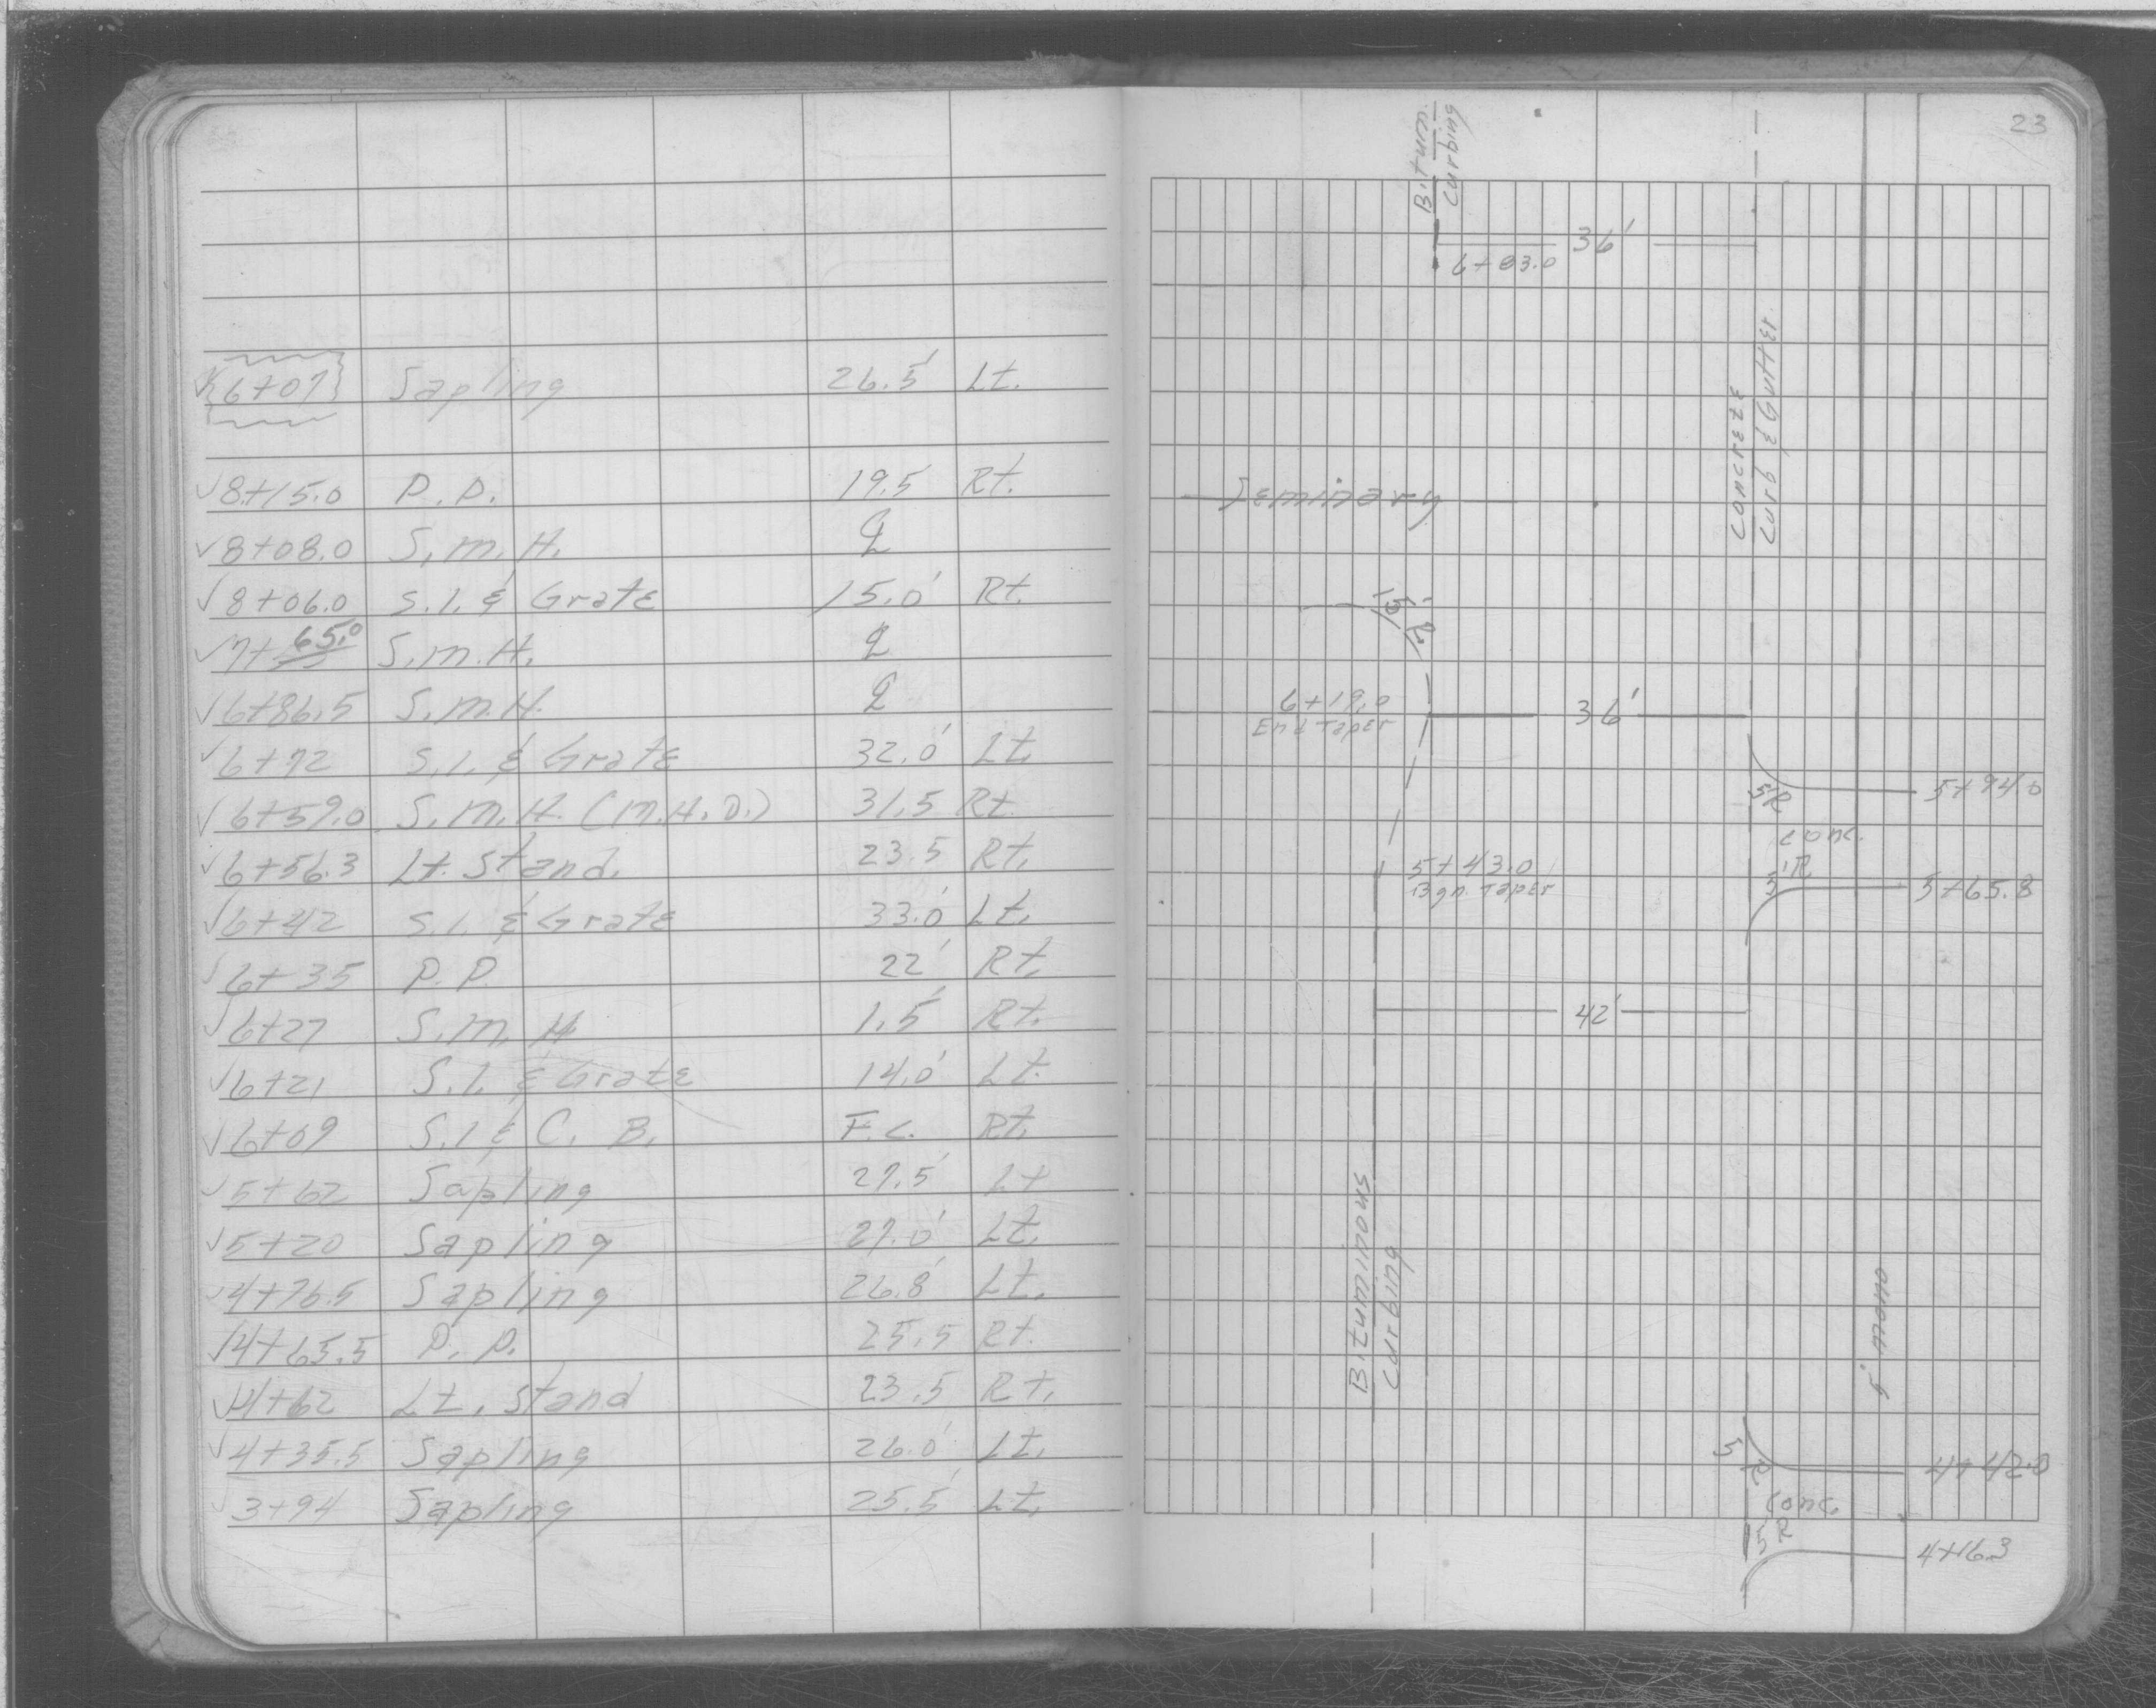 23
6+07 Sapling 26.5' Lt.
8+15.0 P.P. 19.5' Rt.
8+08.0 S.M.H. ℄
8+06.0 S.I. & Grate 15.0' Rt.
7+65.0 S.M.H. ℄
6+86.5 S.M.H. ℄
6+72 S.I. & Grate 32.0' Lt.
6+59.0 S.M.H. (M.H.D.) 31.5 Rt.
6+56.3 Lt. Stand. 23.5 Rt.
6+42 S.I. & Grate 33.0' Lt.
6+35 P.P. 22' Rt.
6+27 S.M.H 1.5' Rt.
6+21 S.I. & Grate 14.0' Lt.
6+09 S.I & C. B. F.C. Rt.
5+62 Sapling 27.5' Lt
5+20 Sapling 27.0' Lt.
4+76.5 Sapling 26.8' Lt.
4+65.5 P.P. 25.5 Rt.
4+62 Lt. Stand 23.5 Rt.
4+35.5 Sapling 26.0' Lt.
3+94 Sapling 25.5' Lt.
Bitum.
Curbing
36'
6+83.0
Concrete
Curb & Gutter
Seminary
15' R
6+19.0
End Taper
36'
5'R
5+94.0
Conc.
5'R
5+65.8
5+43.0
Bgn. Taper
42'
Bituminous
Curbing
5' mono
5' R
4+42.8
Conc.
5'R
4+16.3